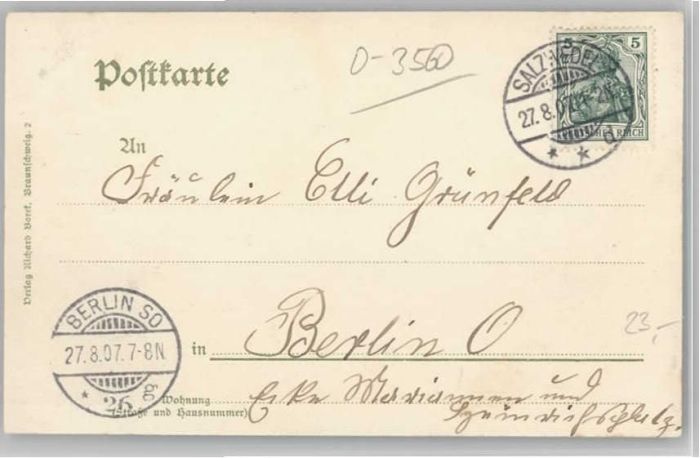 Postkarte
D-3560
5 5
SALZWEDEL
27.8.07.
DEUTSCHES REICH
An
Fräulein Elli Grünfeld
Verlag Richard Borek, Braunschweig. 2
BERLIN SO
27.8.07.7-8N
* 26 ao
in Berlin O
23,-
Wohnung Ecke Mariannen und
(Straße und Hausnummer) Heinrichsplatz.